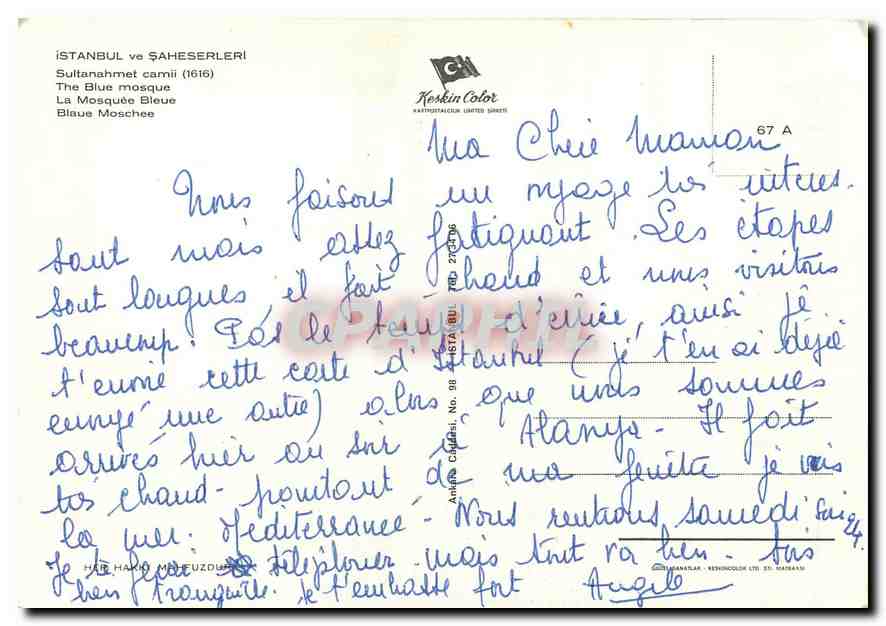 İSTANBUL ve ŞAHESERLERİ
Sultanahmet camii (1616)
The Blue mosque
La Mosquée Bleue
Blaue Moschee
Keskin Color
KARTPOSTALCILIK LIMITED ŞİRKETİ
67 A
Ma Chère Maman
Nous faisons un voyage très intéres-
sant mais assez fatiguant. Les étapes
sont longues, il fait chaud et nous visitons
beaucoup. Pas le temps d'écrire, aussi je
t'envoie cette carte d'Istanbul (je t'en ai déjà
envoyé une autre) alors que nous sommes
arrivés hier au soir à Alanya - Il fait
très chaud - pourtant de ma fenêtre je vois
la mer Méditerranée - Nous rentrons samedi soir
24.
Je te ferai téléphoner mais tout va bien - Sois
bien tranquille. Je t'embrasse fort Angèle
Ankara Caddesi, No. 98 - İSTANBUL Tel: 27 34 06
HER HAKKI MAHFUZDUR
CPARAMA